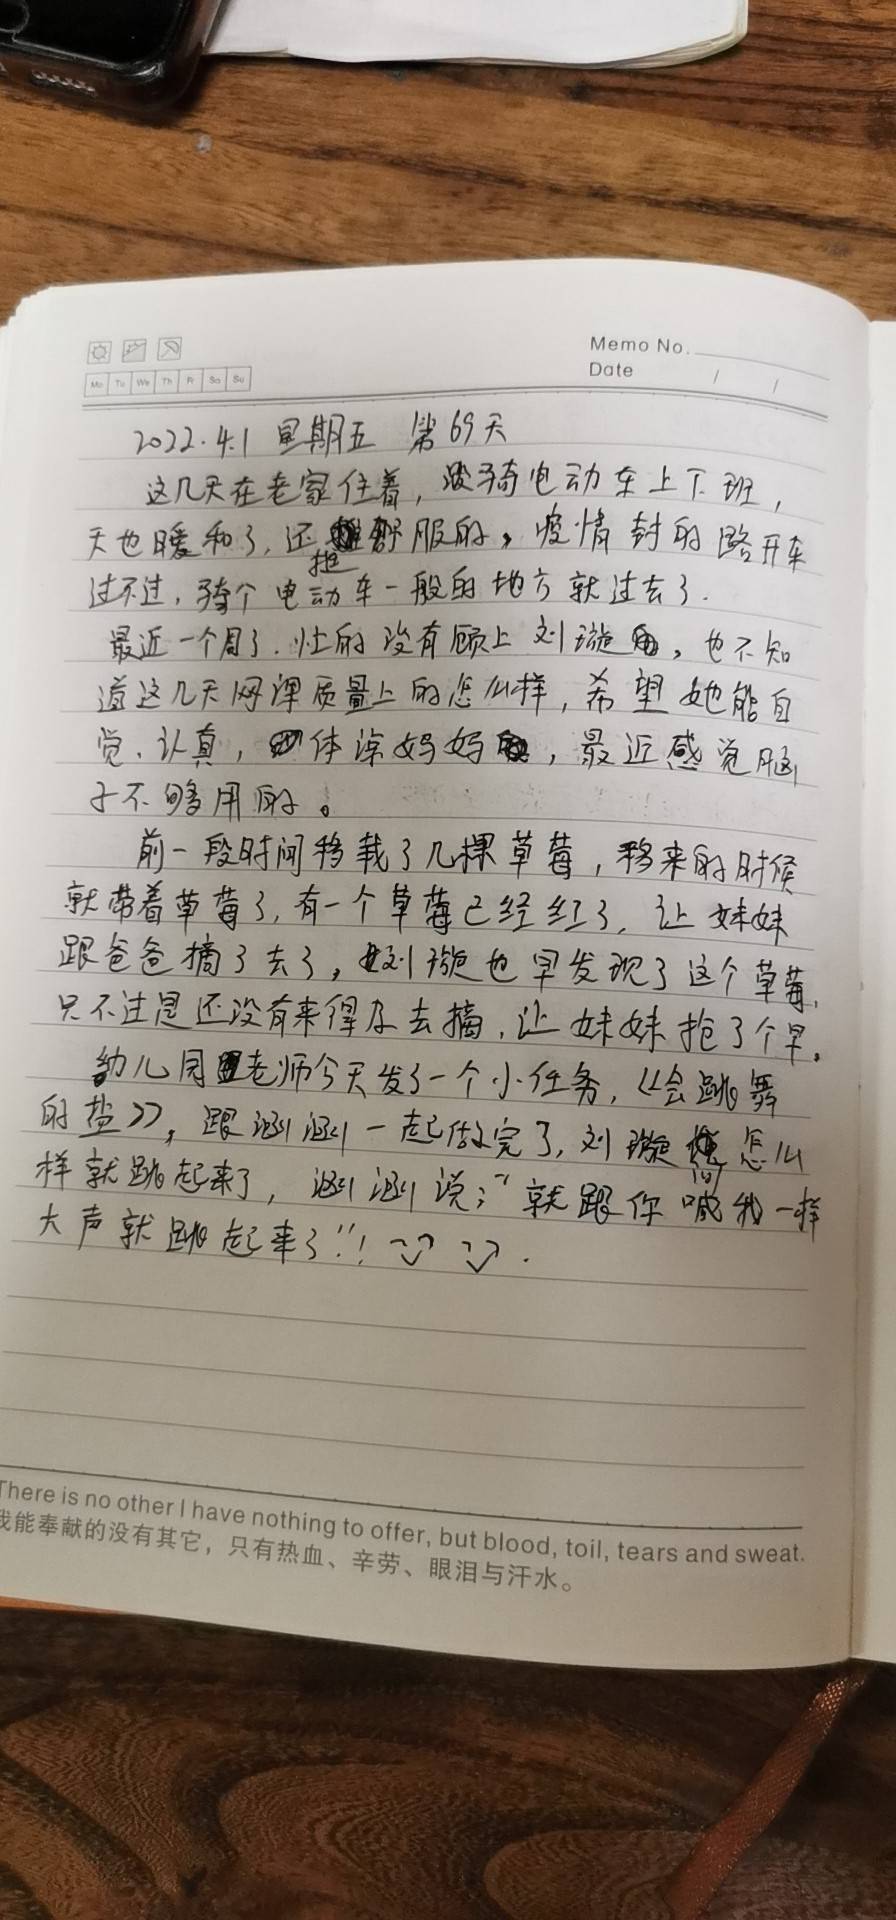 Memo No.
Mo Tu We Th Fr Sa Su
Date / /
2022.4.1 星期五 第69天
这几天在老家住着，没骑电动车上下班，
天也暖和了，还挺舒服的，疫情封的路开车
过不过，骑个电动车一般的地方就过去了.
最近一个周了.忙的没有顾上刘璇，也不知
道这几天网课质量上的怎么样，希望她能自
觉、认真，体谅妈妈，最近感觉脑
子不够用的。
前一段时间移栽了几棵草莓，移来的时候
就带着草莓了，有一个草莓已经红了，让妹妹
跟爸爸摘了去了，刘璇也早发现了这个草莓，
只不过是还没有来得及去摘，让妹妹抢了个早。
幼儿园老师今天发了一个小任务，《会跳舞
的盐》，跟涵涵一起做完了，刘璇问怎么
样就跳起来了，涵涵说：“就跟你喊我一样
大声就跳起来了”！
There is no other I have nothing to offer, but blood, toil, tears and sweat.
我能奉献的没有其它，只有热血、辛劳、眼泪与汗水。